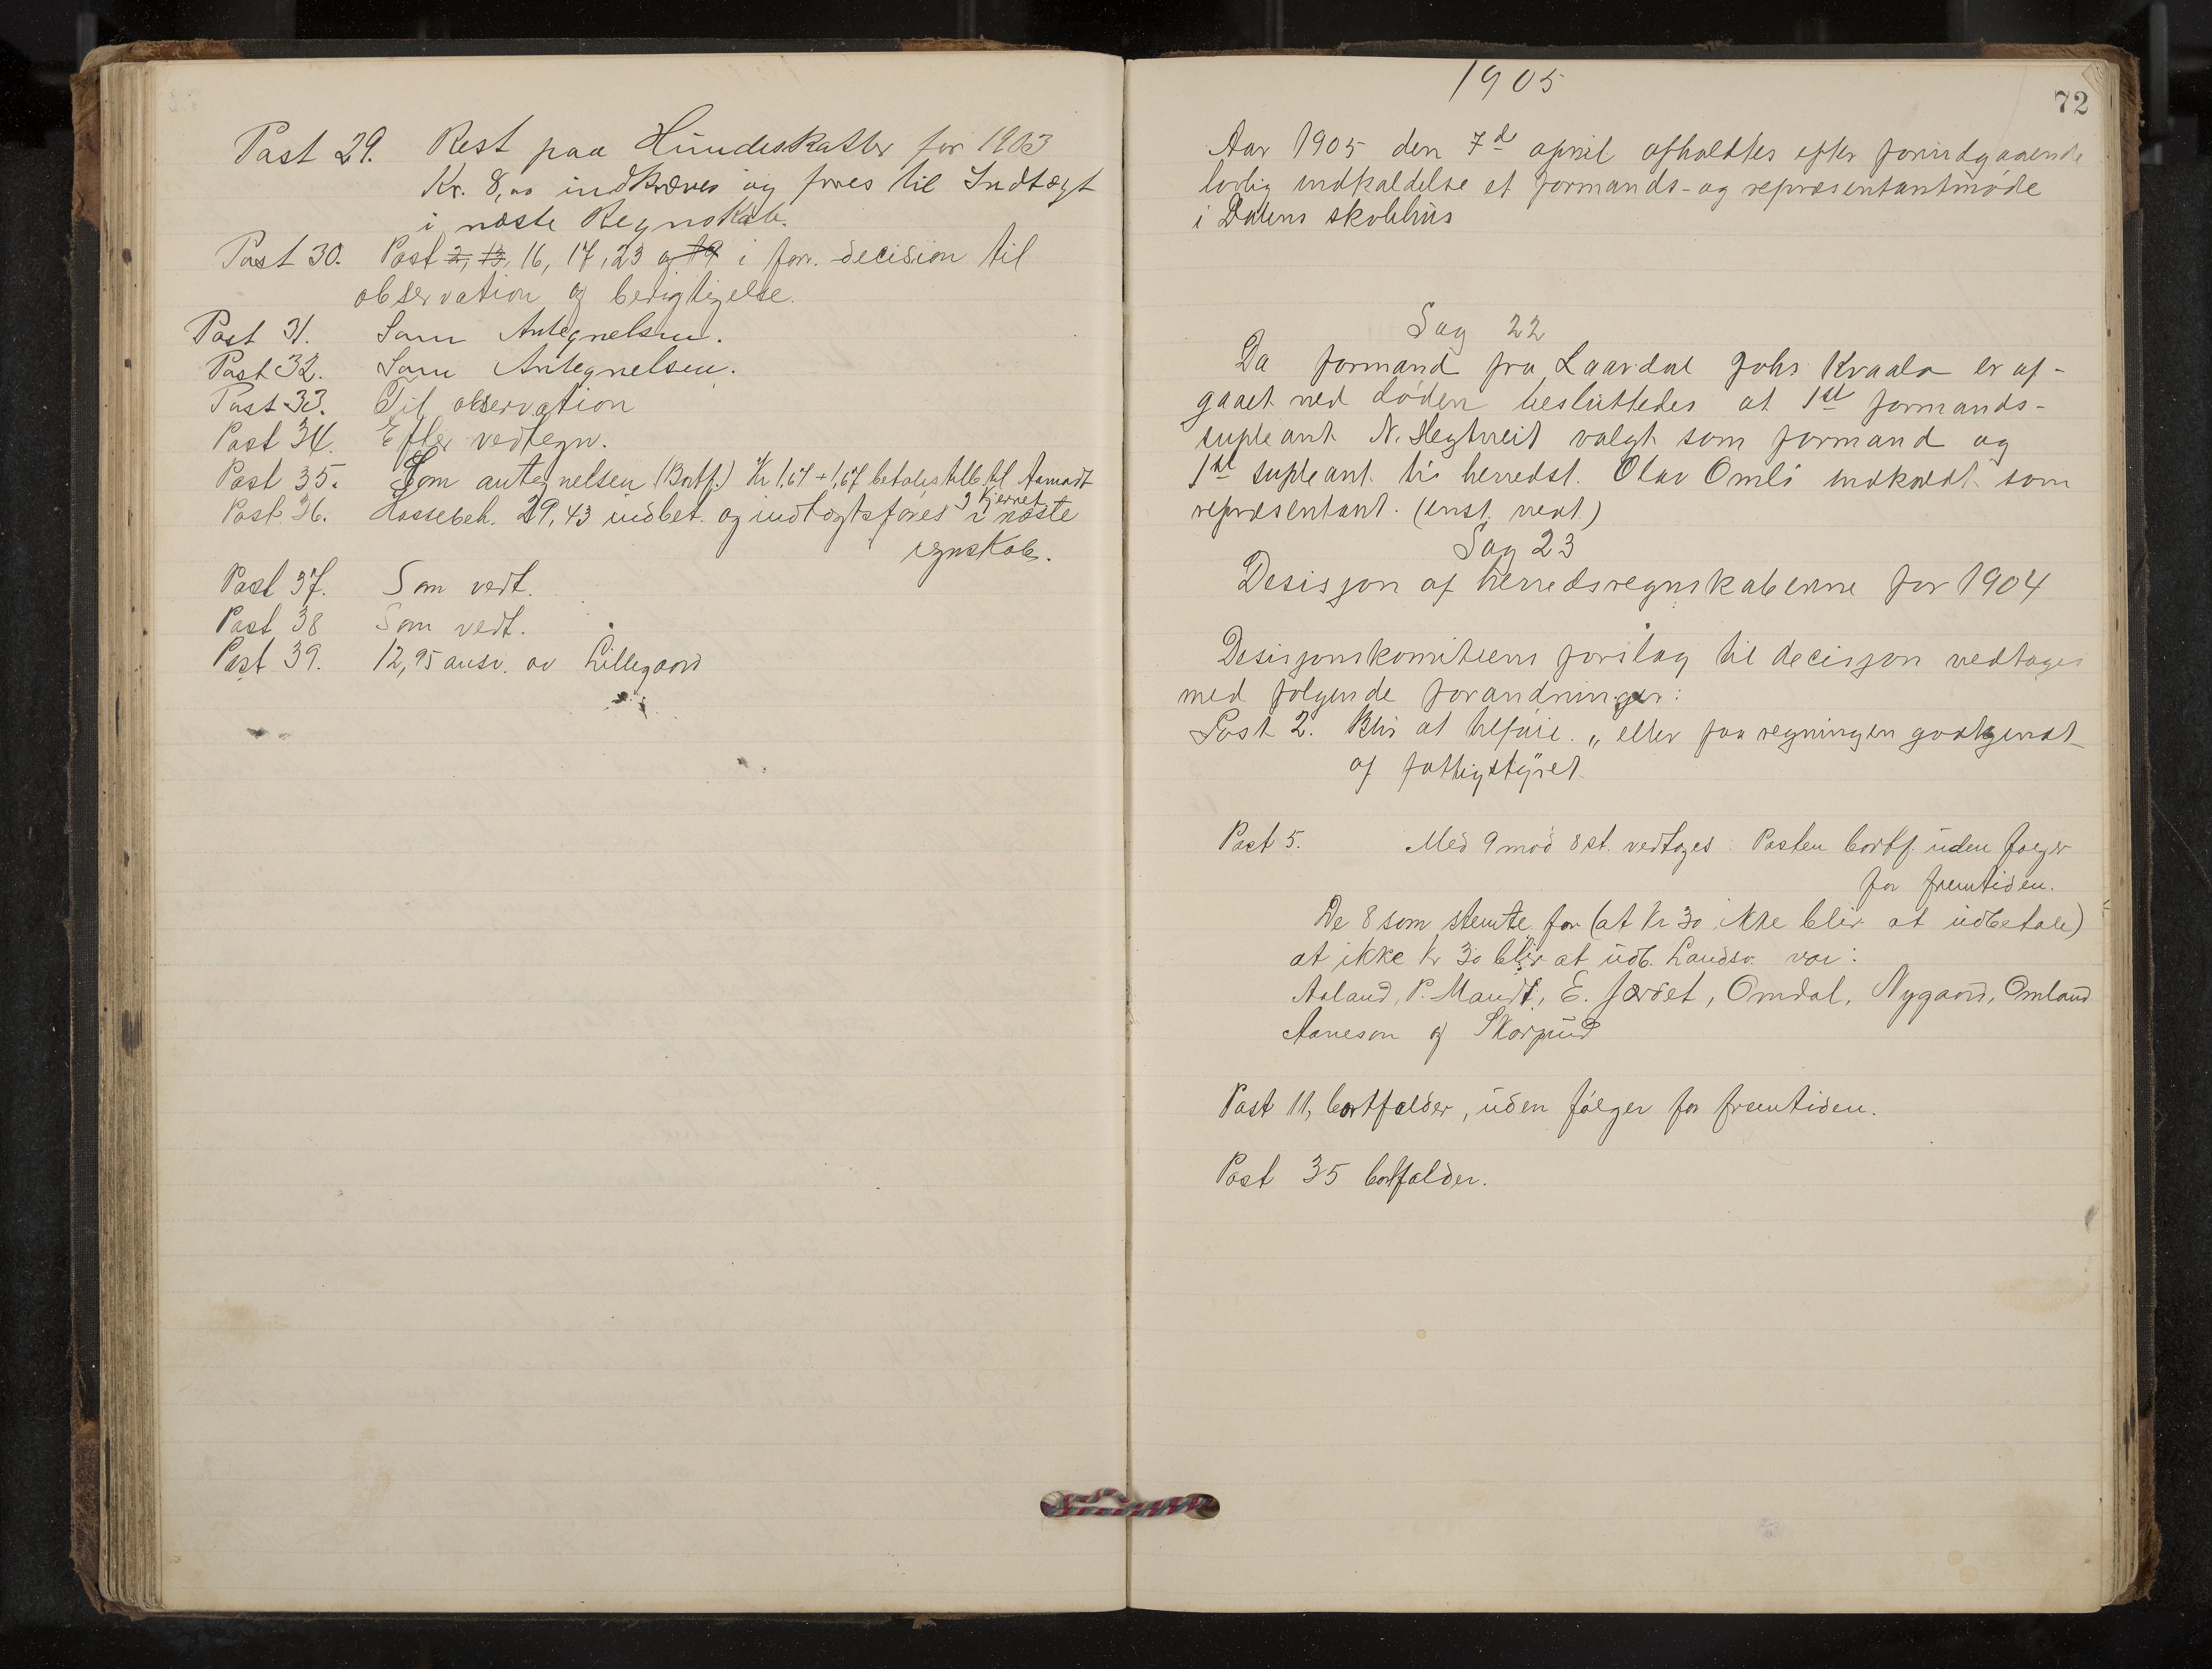 Post 29. Rest paa Hundeskatter for 1903
Kr. 8,00 indkræves og føres til Indtægt
i næste Regnskab.
Post 30. Post 2, 13, 16, 17, 23 og 19 i forr. decision til
observation og berigtigelse.
Post 31. Som Antegnelsen.
Post 32. Som Antegnelsen.
Post 33. Til observation
Post 34. Efter vedtegn.
Post 35. Som antegnelsen (Bortf.) Kr 1,67 + 1,67 betales tilb. til Aamodt
g Kjernet
Post 36. Kassebeh. 29,43 indbet. og indtægtsføres i næste
regnskab.
Post 37. Som vedt.
Post 38 Som vedt.
Post 39. 12,95 ansv. av Lillegaard
1905
72
Aar 1905 den 7d april afholdtes efter forudgaaende
lovlig indkaldelse et formands- og repræsentantmøde
i Dalens skolehus
Sag 22
Da formand fra Laardal Johs Kvaalo er af-
gaaet ved døden besluttedes at 1st formands-
supleant N. Hegtveit valgt som formand og
1st supleant til herredst. Olav Omli indkaldt som
repræsentant. (enst. vedt.)
Sag 23
Desisjon af herredsregnskaberne for 1904
Desisjonskomiteens forslag til decisjon vedtages
med følgende forandringer:
Post 2. Blir at tilføie. „ eller faa regningen godkjendt
af fattigstyret.
Post 5. Med 9 mod 8 st. vedtages: Posten bortf. uden følger
for fremtiden.
De 8 som stemte for (at Kr 30 ikke blir at udbetale)
at ikke kr 30 blir at udb. Landsv. var:
Aaland, P. Mandt, E. Jordet, Omdal, Nygaard, Omland
Aaneson og Skarprud
Post 11, bortfalder, uden følger for fremtiden.
Post 35 bortfalder.